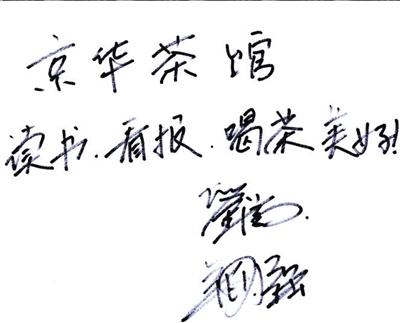 京华茶馆
读书.看报.喝茶美好!